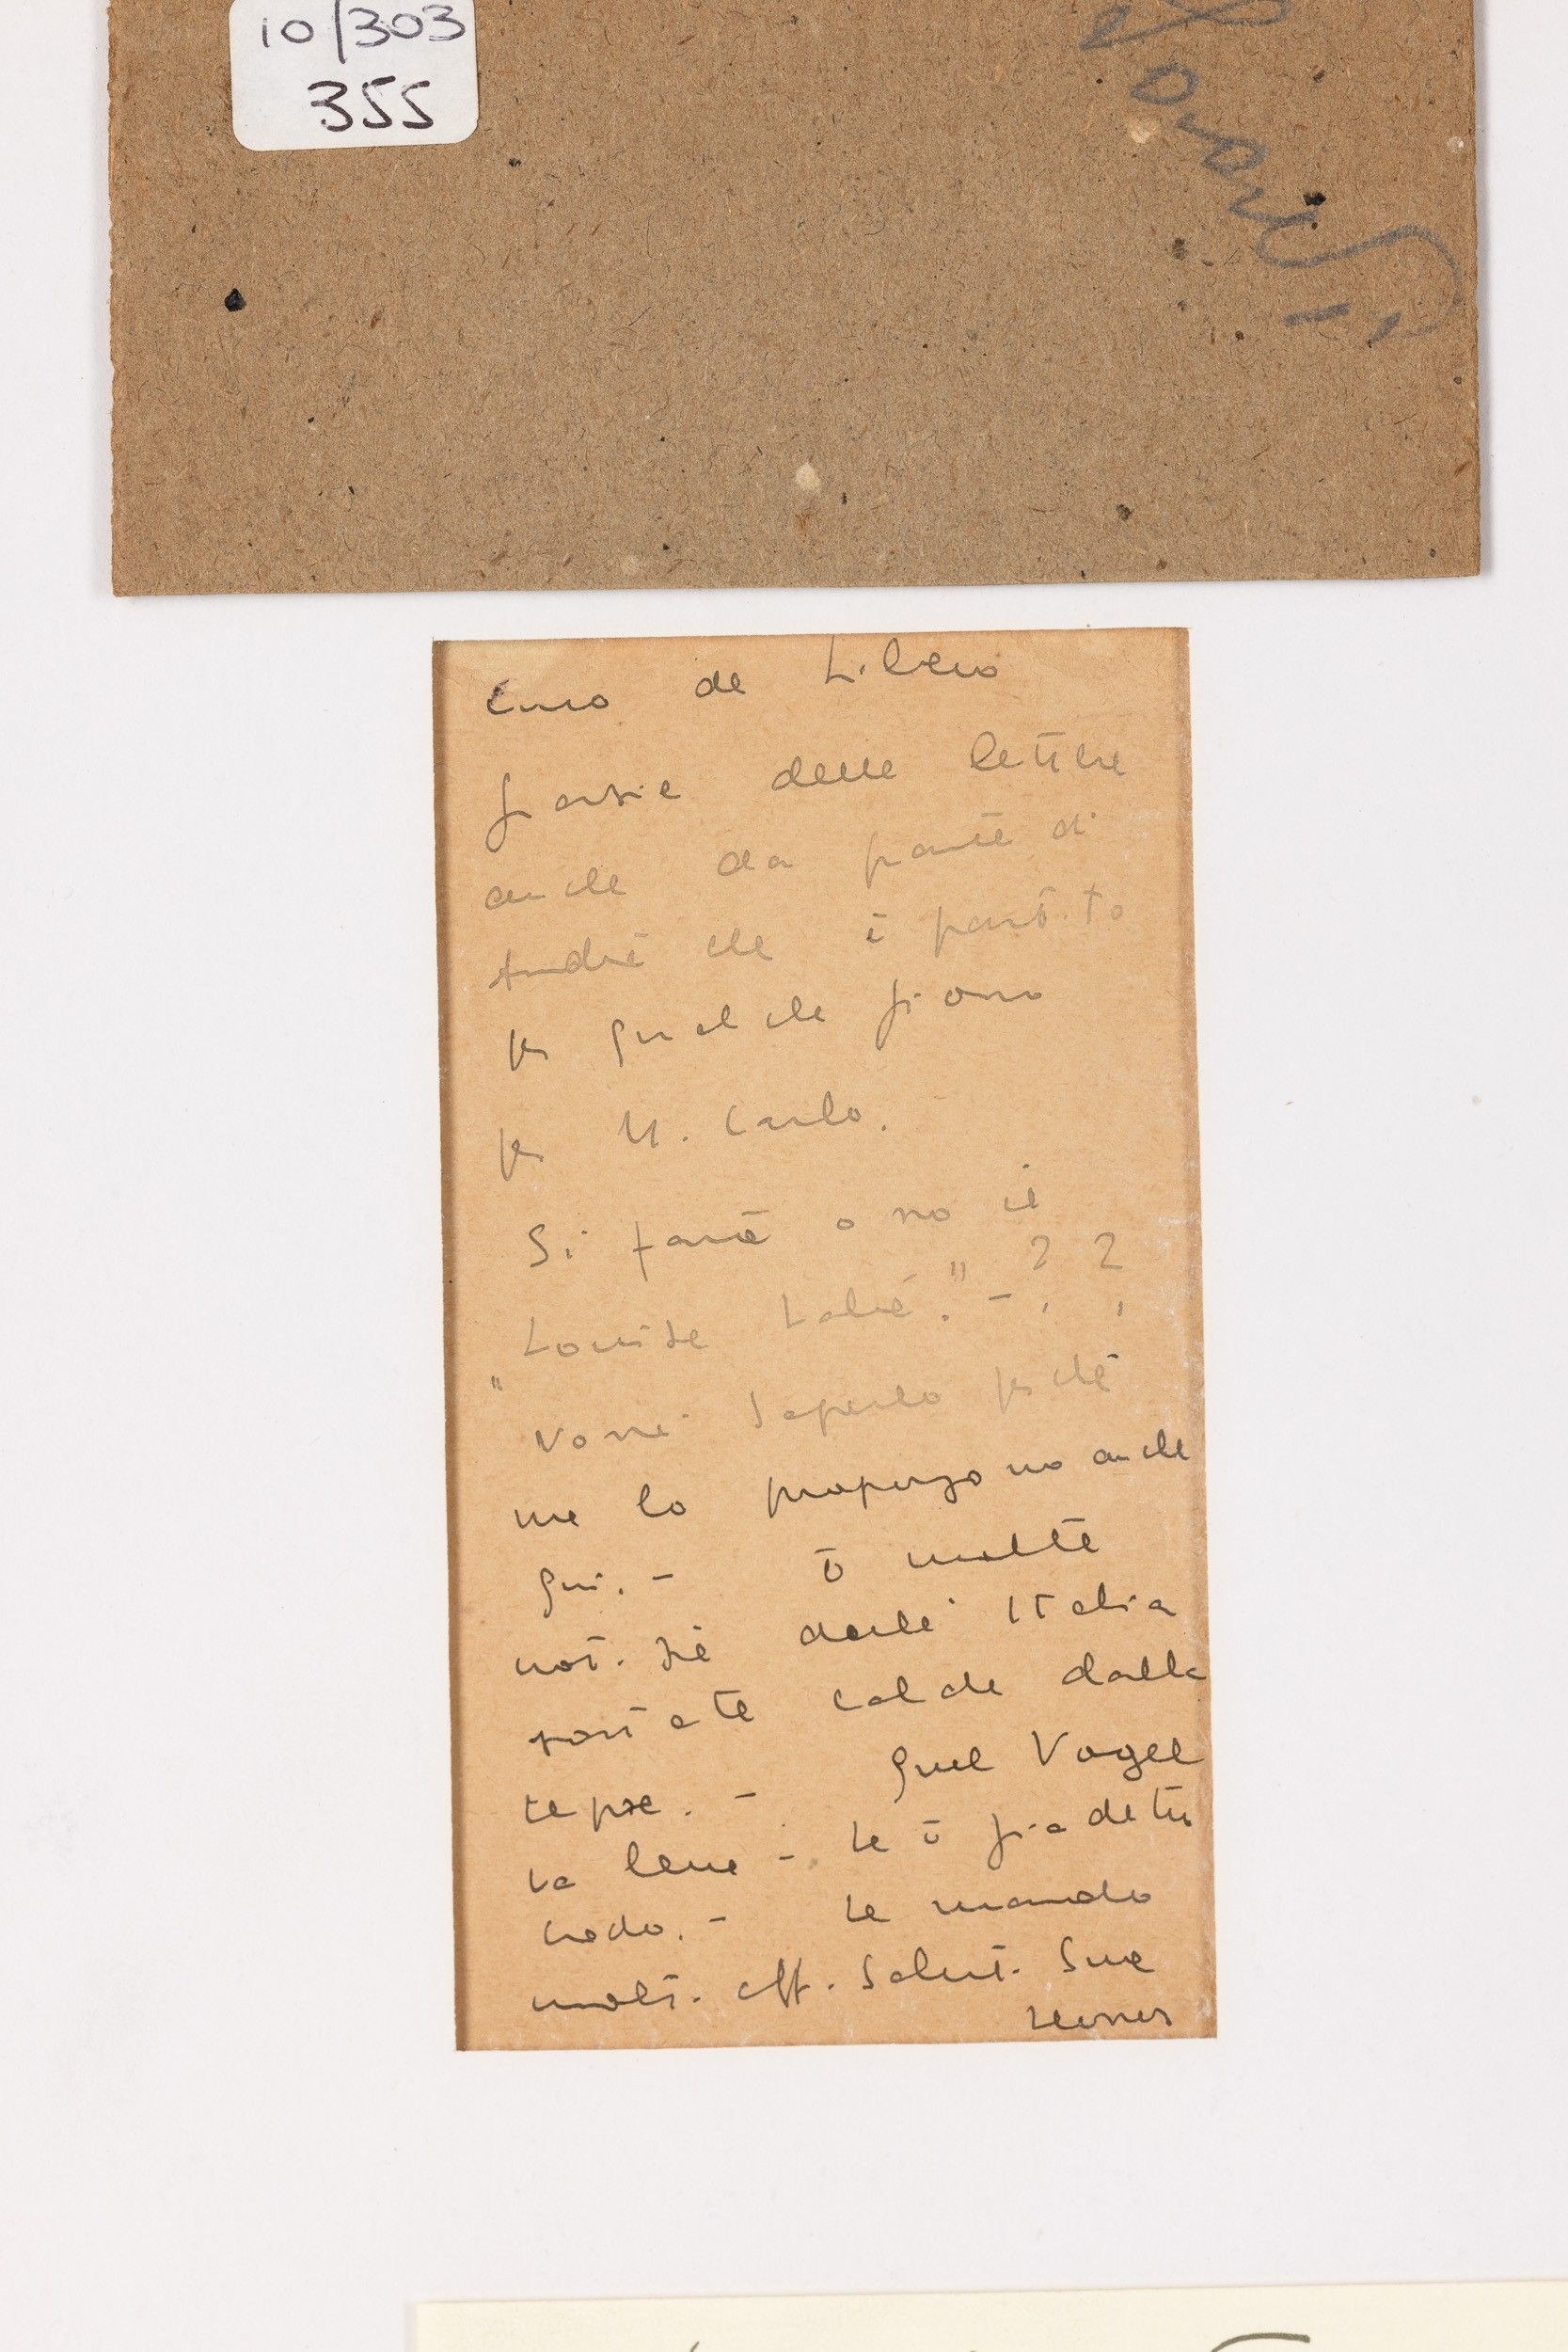 10/303
355
Caro de Libero
grazie delle lettere
anche da parte di
André che è partito
per qualche giorno
per M. Carlo.
Si farà o no il
"Louise Labé." - ? ?
Vorrei saperlo perché
me lo propongono anche
qui. - ò molte
notizie dall' Italia
portate calde dalla
Quel Vogel
va bene - Le ò già detto
credo. - Le mando
molti aff. saluti. Sue